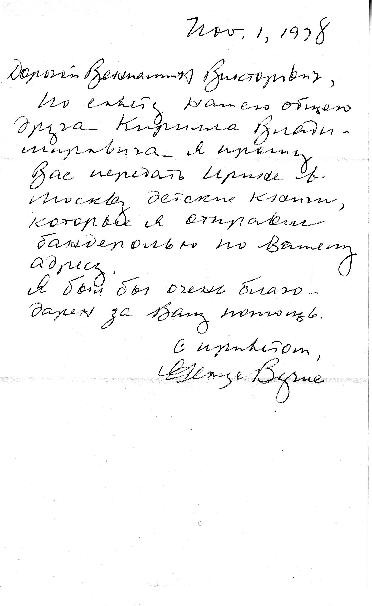 Nov. 1, 1978
Дорогой Вениамин Викторович,
По совету нашего общего
друга – Кирилла Влади-
мировича – я прошу
Вас передать Ирине в
Москву детские книги,
которые я отправил
бандеролью по Вашему
адресу.
Я был бы очень благо-
дарен за Вашу помощь.
С приветом,
George Byrne